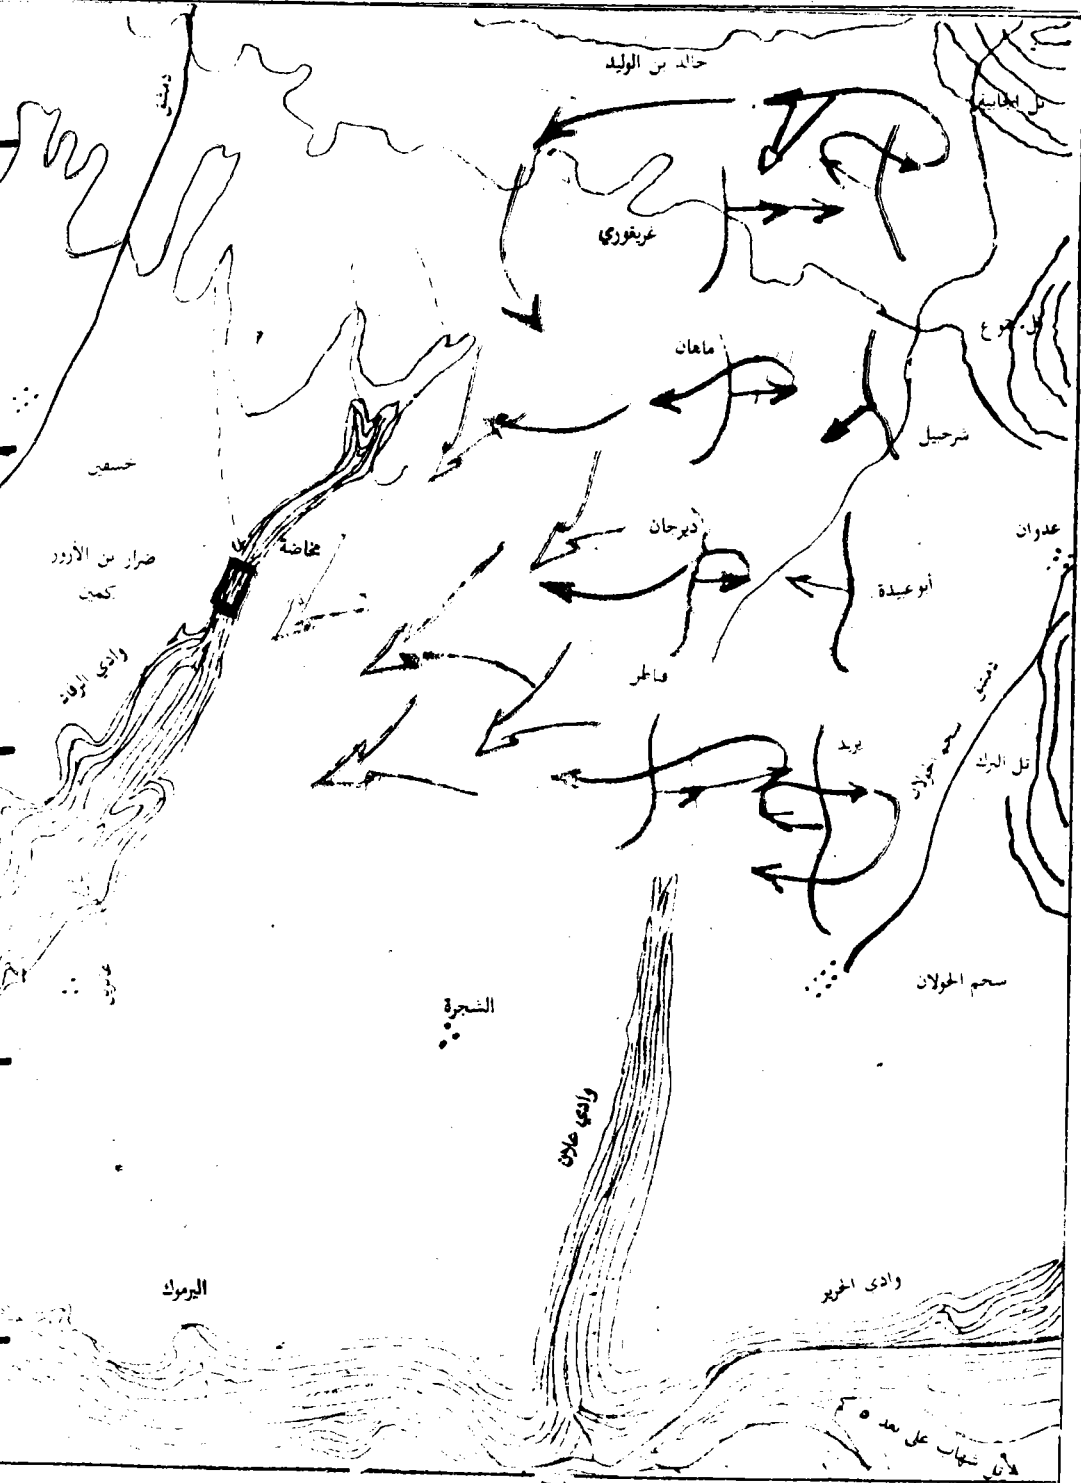 خالد بن الوليد
دمشق
تل الجابية
غريغوري
تل جموع
ماهان
شرحبيل
خسفين
ديرجان
عدوان
مخاضة
ضرار بن الأزور
كمين
أبو عبيدة
وادي الرقاد
قناطر
دمشق
يزيد
سحم الجولان
تل البرك
سحم الجولان
الشجرة
وادي علان
اليرموك
وادي الحرير
لاتل شهاب على بعد ٥ كم